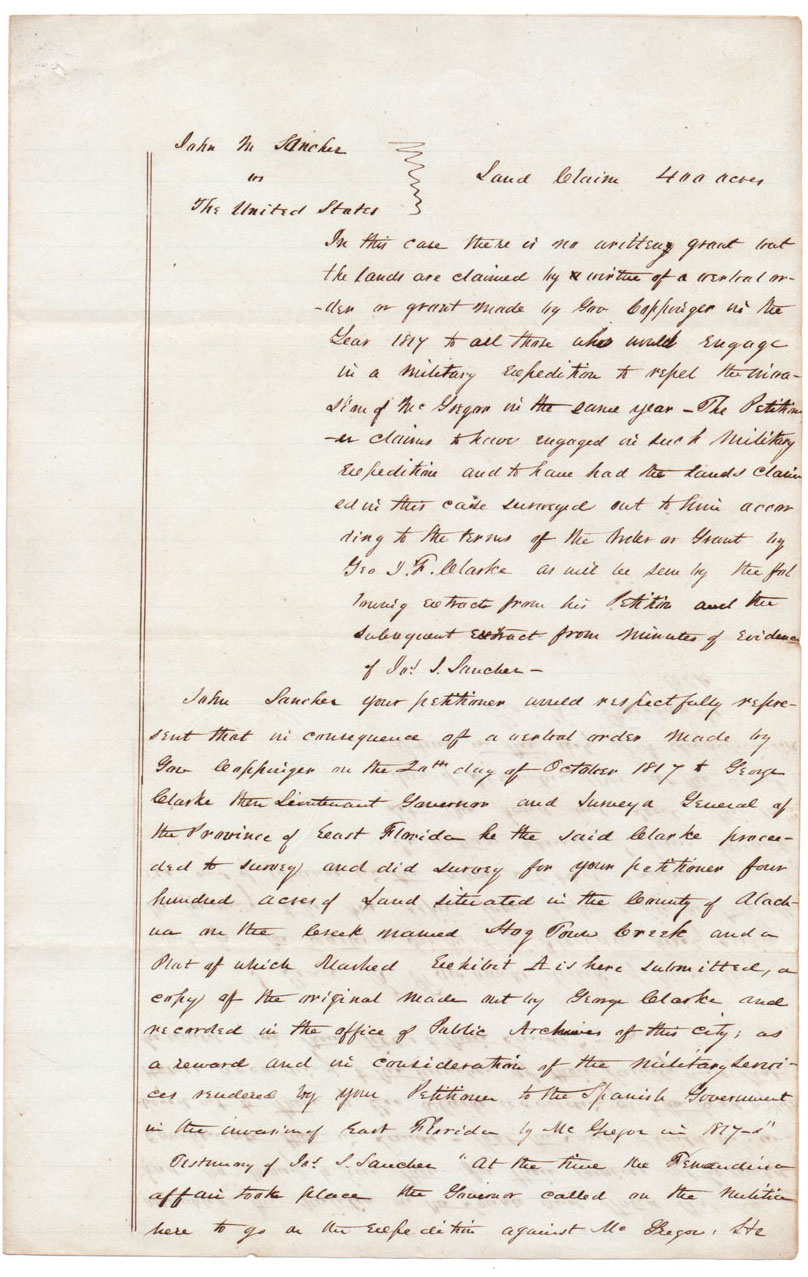 John M Sancher
vs
The United States
Land Claim 400 acres
In this case there is no written grant but
the lands are claimed by virtue of a verbal or-
-der or grant made by Gov Coppinger in the
Year 1817 to all those who would engage
in a Military Expedition to repel the inva-
sion of McGregor in the same year - The Petition
-er claims to have engaged in such Military
Expedition and to have had the lands claim
ed in this case surveyed out to him accor
ding to the terms of the Order or Grant by
Geo J. F. Clarke as will be seen by the fol
lowing extract from his Petition and the
subsequent Extract from Minutes of Evidence
of Jos. S. Sancher -
John Sancher your petitioner would respectfully repre-
sent that in consequence of a verbal order made by
Gov Coppinger on the 20th day of October 1817 & George
Clarke then Lieutenant Governor and Surveyor General of
the Province of East Florida he the said Clarke procee-
ded to survey and did survey for your petitioner four
hundred acres of Land situated in the County of Alach-
ua on the Creek named Hog Town Creek and a
Plat of which Marked Exhibit A is here submitted, a
copy of the original made out by George Clarke and
recorded in the office of Public Archives of this city; as
a reward and in consideration of the Military Servi-
ces rendered by your Petitioner to the Spanish Government
in the invasion of East Florida by McGregor in 1817-"
Testimony of Jos. S. Sancher "At the time the Fernandina
affair took place the Governor called on the Militia
here to go on the expedition against McGregor. He